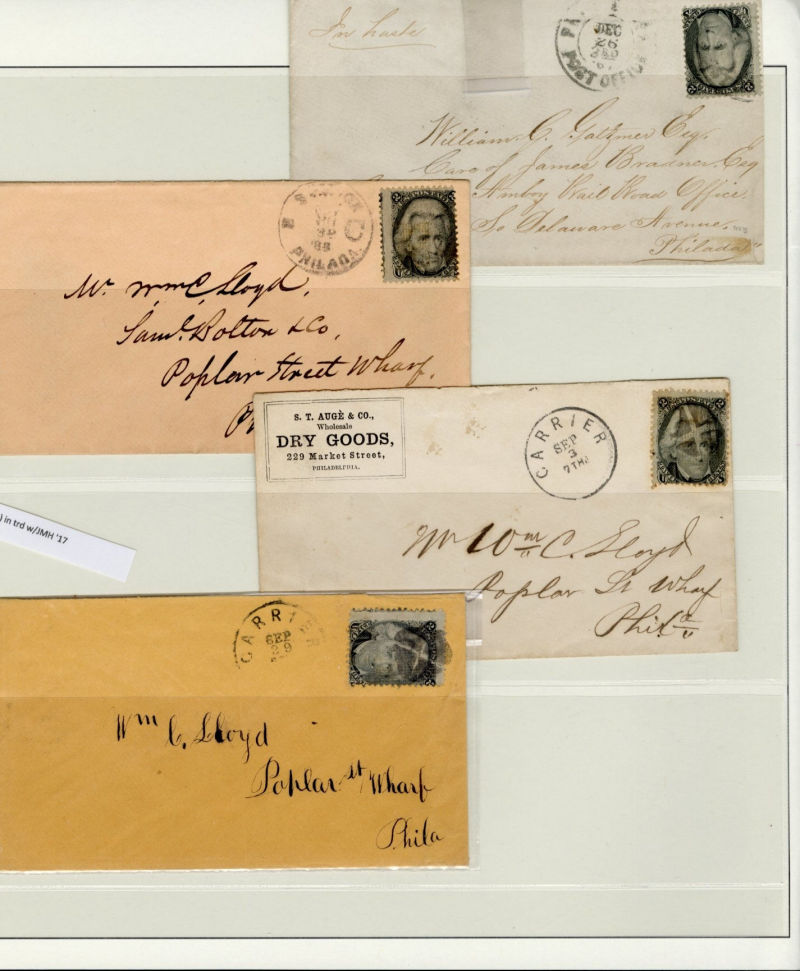 In haste
DEC
26
POST OFFICE
William C. Galzmer Esq.
Care of James Bradner Esq
Amboy Rail Road Office
So Delaware Avenue.
Philada
PHILADA.
Mr Wm C. Lloyd,
Saml. Bolton & Co,
Poplar Street Wharf.
S. T. AUGÈ & CO.,
Wholesale
DRY GOODS,
229 Market Street,
PHILADELPHIA.
CARRIER
SEP
3
7TH
Mr Wm C. Lloyd
Poplar St Wharf
Phila
) in trd w/JMH '17
CARRI
SEP
29
Wm C. Lloyd
Poplar St Wharf
Phila